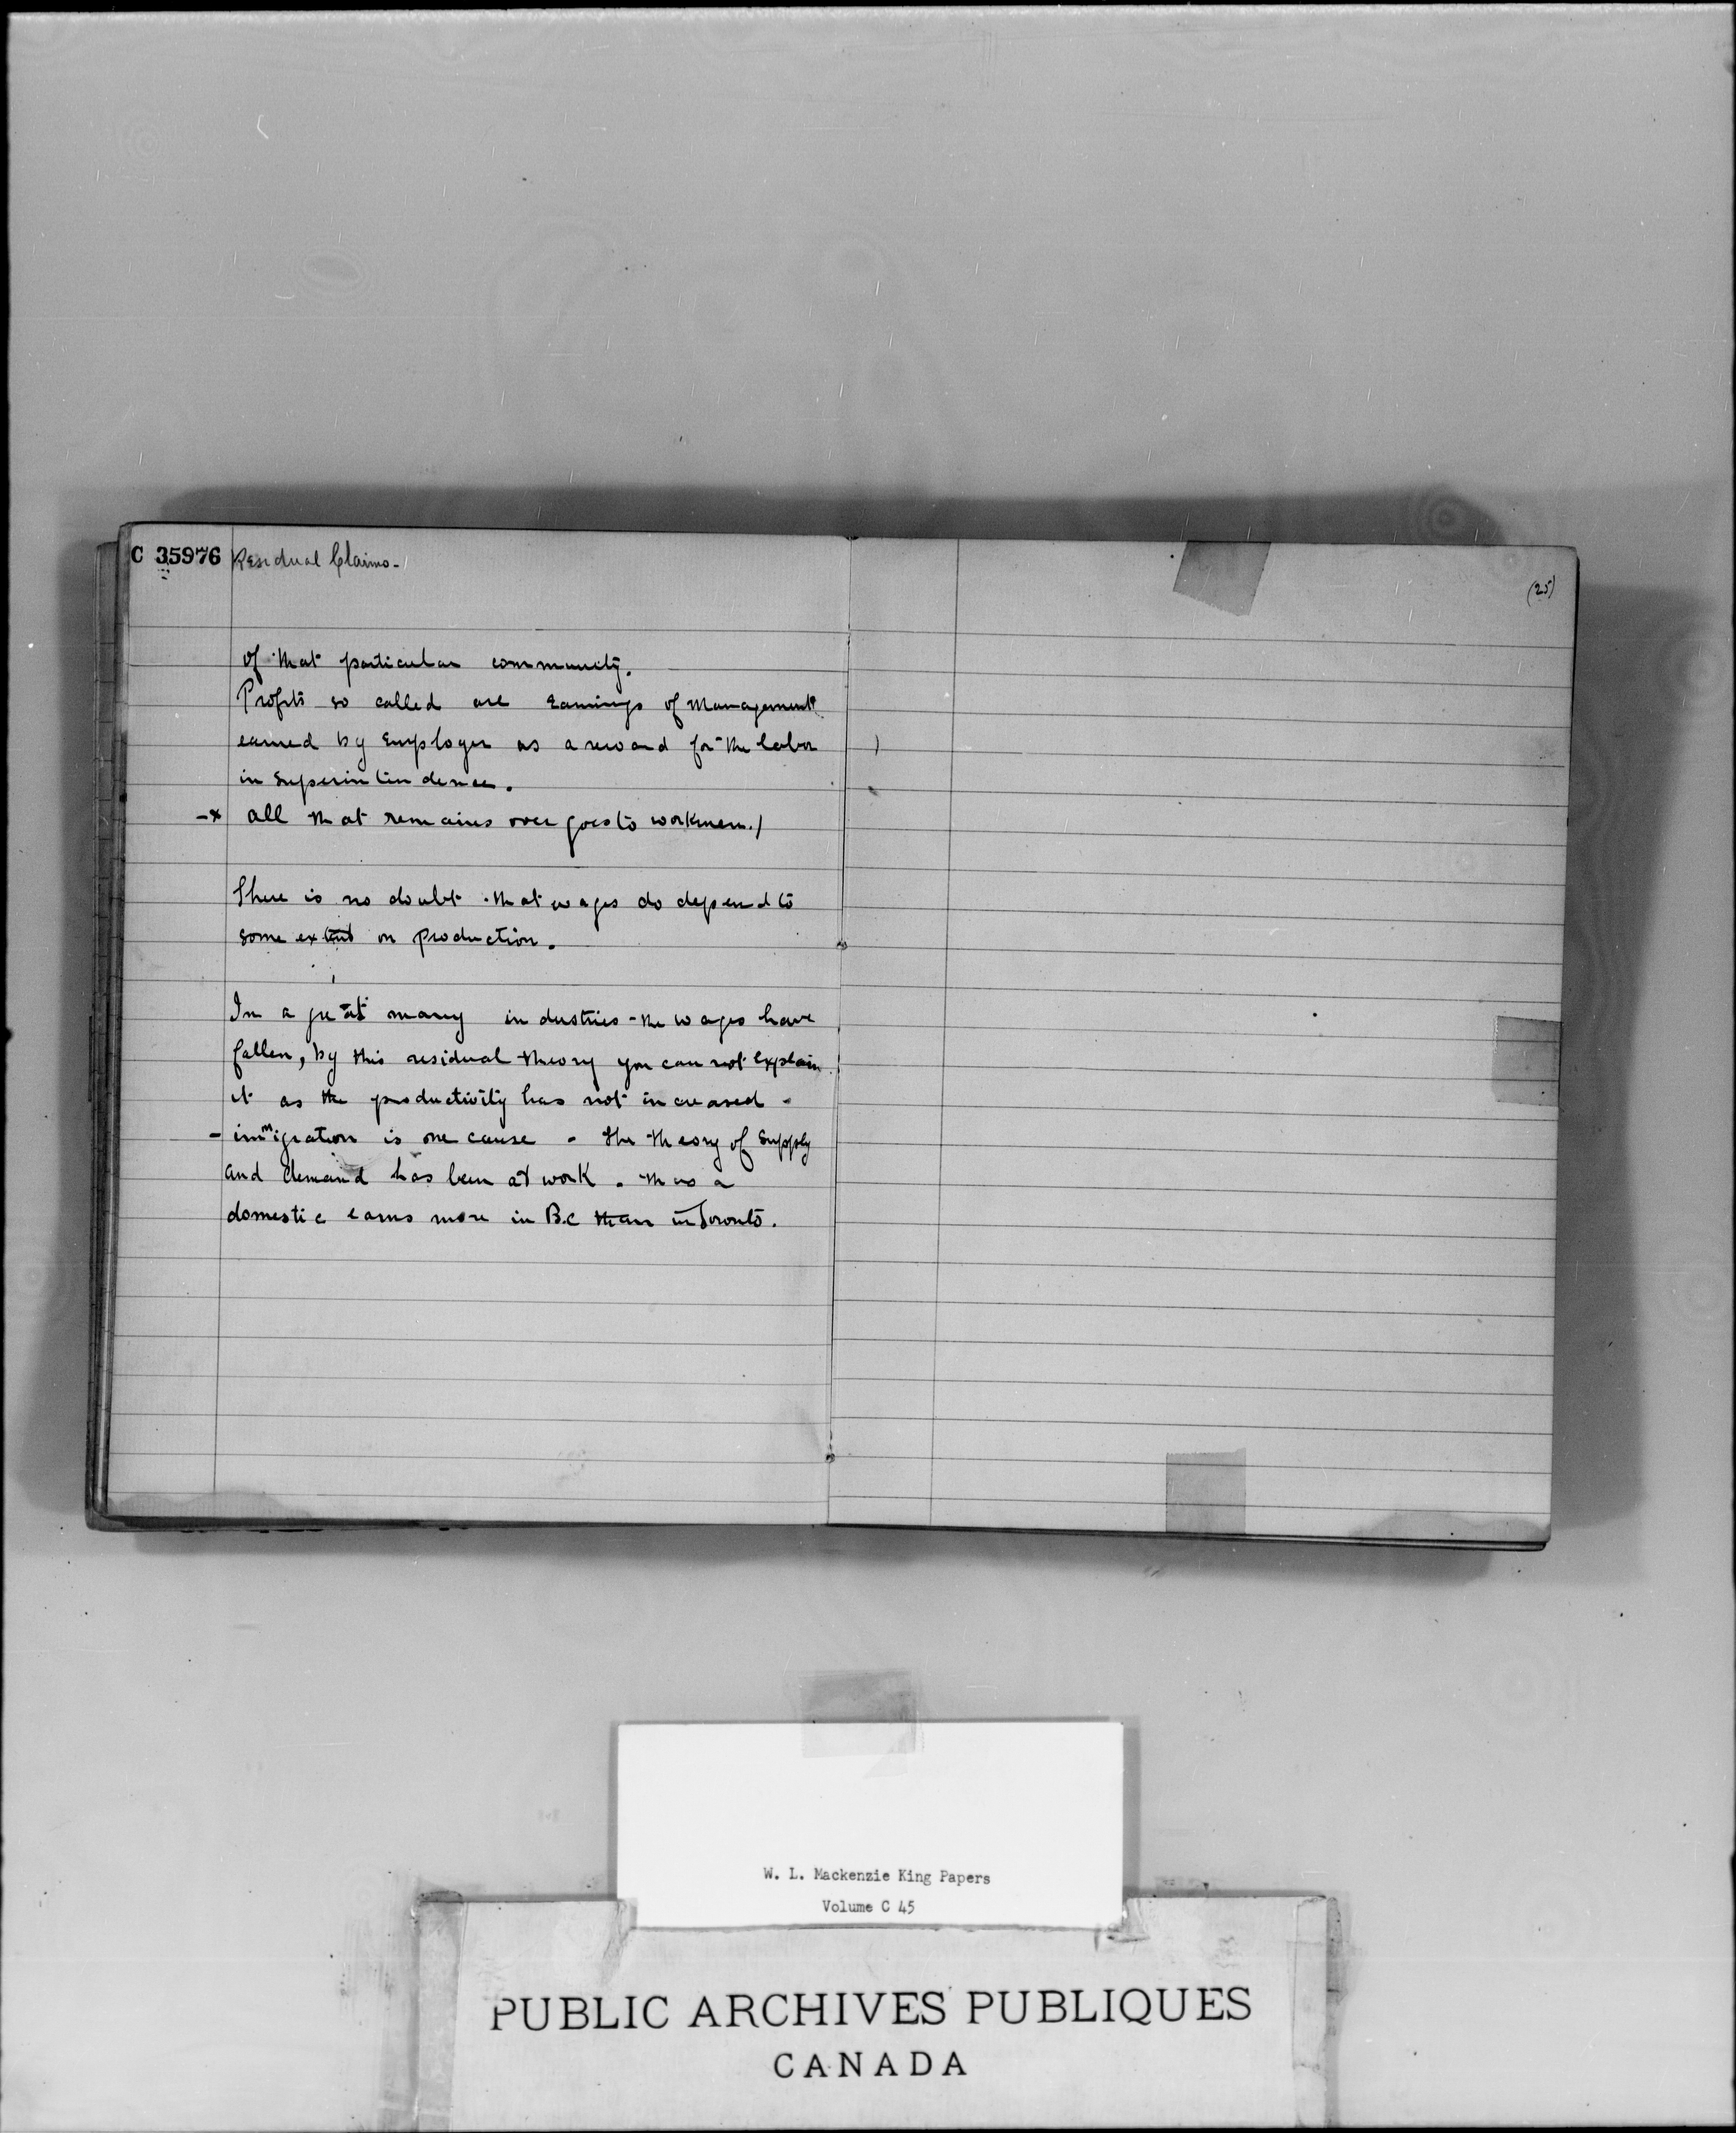 C 35976 Residual Claims -
(25)
of that particular community.
Profits so called are Earnings of Management
earned by Employer as a reward for the labor
in Superintendence.
-x all that remains over goes to workmen./
There is no doubt that wages do depend to
some extent on production.
In a great many industries the wages have
fallen, by this residual theory you can not Explain
it as the productivity has not increased -
- immigration is one cause - the theory of Supply
and demand has been at work. Thus a
domestic earns more in B.C than in Toronto.
W. L. Mackenzie King Papers
Volume C 45
PUBLIC ARCHIVES PUBLIQUES
CANADA